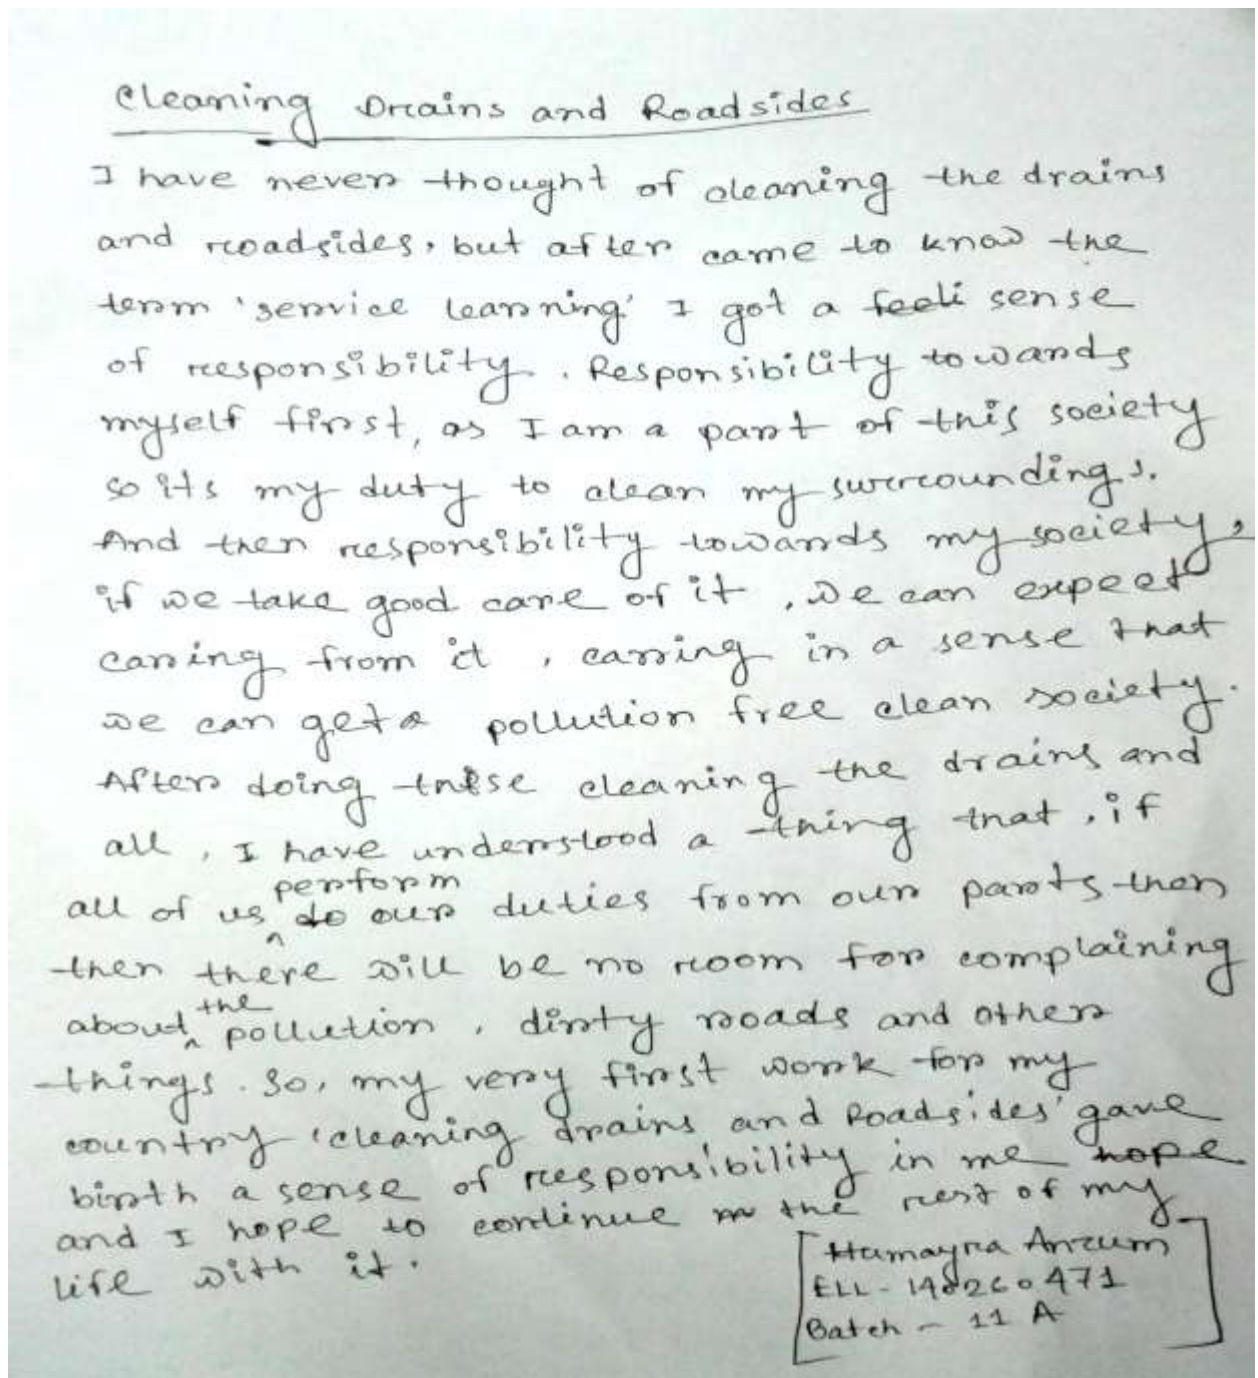 Cleaning Drains and Roadsides
I have never thought of cleaning the drains
and roadsides, but after came to know the
term 'service learning' I got a feeli sense
of responsibility. Responsibility towards
myself first, as I am a part of this society
so its my duty to clean my surroundings.
And then responsibility towards my society,
if we take good care of it, we can expect
caring from it, caring in a sense that
we can get a pollution free clean society.
After doing these cleaning the drains and
all, I have understood a thing that, if
all of us do perform our duties from our parts then
then there will be no room for complaining
about the pollution, dirty roads and other
things. So, my very first work for my
country 'cleaning drains and Roadsides' gave
birth a sense of responsibility in me hope
and I hope to continue the rest of my
life with it.
Humayra Anzum
ELL-
Batch - 11 A